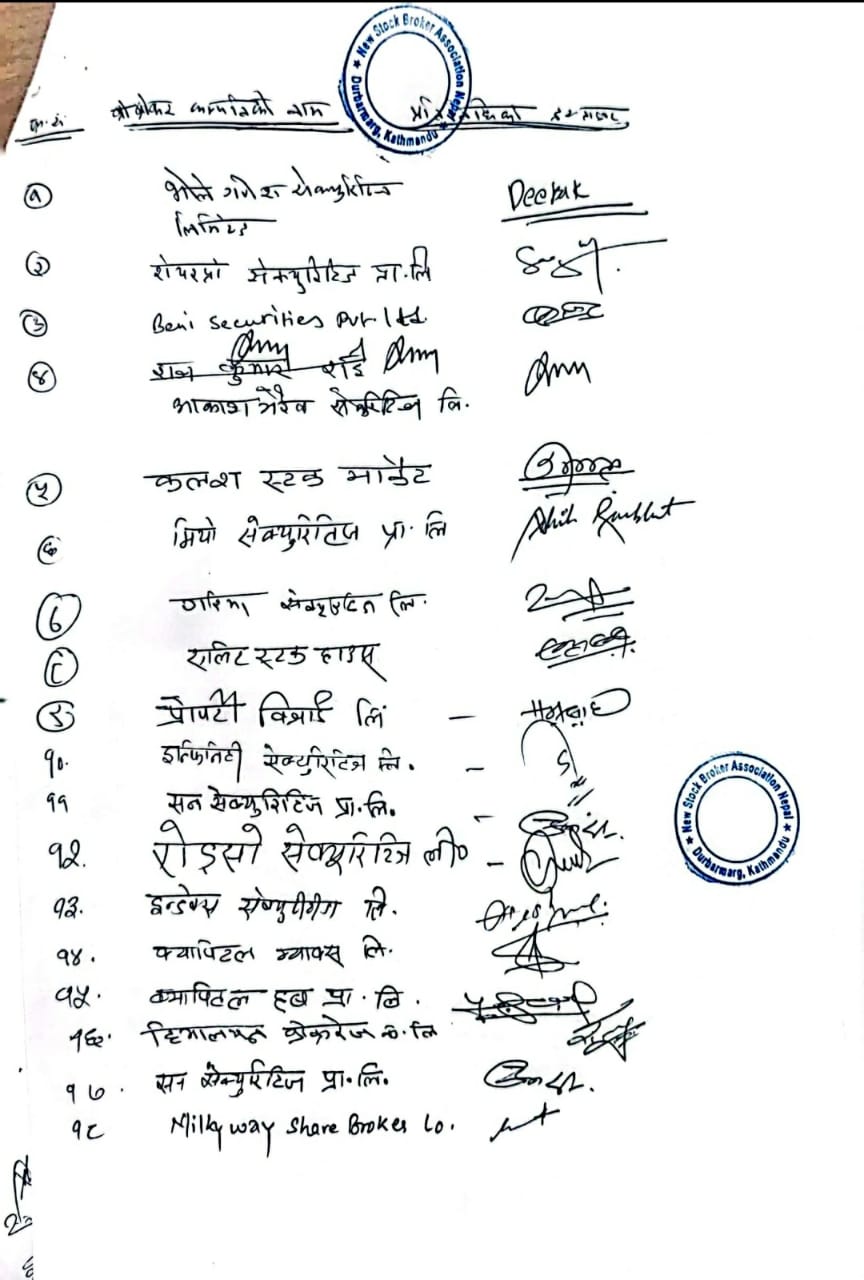 ★ New Stock Broker Association Nepal ★ Durbarmarg, Kathmandu
क्र.सं. ब्रोकर कम्पनिको नाम हस्ताक्षर
१ भोले गणेश सेक्युरिटिज Deepak
लिमिटेड
२ शेयरप्रो सेक्युरिटिज प्रा.लि
३ Beni Securities Pvt. Ltd.
४ राज कुमार राई
आकाश भैरव सेक्युरिटिज लि.
५ कलश स्टक मार्केट
६ मियो सेक्युरिटिज प्रा. लि
७ गरिमा सेक्युरिटिज लि.
८ एलिट स्टक हाउस
९ प्रोपर्टी विजार्ड लि –
१०. इन्फिनिटी सेक्युरिटिज लि. –
११ सन सेक्युरिटिज प्रा.लि. –
१२. रोड्सो सेक्यूरिटिज ली० –
१३. इन्डेक्स लि.
१४. क्यापिटल म्याक्स् लि.
१५. क्यापिटल हब प्रा. लि.
१६. हिमालयन ब्रोकरेज क. लि
१७. सन सेक्युरिटिज प्रा.लि.
१८ Milky way Share Broker Co.
★ New Stock Broker Association Nepal ★ Durbarmarg, Kathmandu